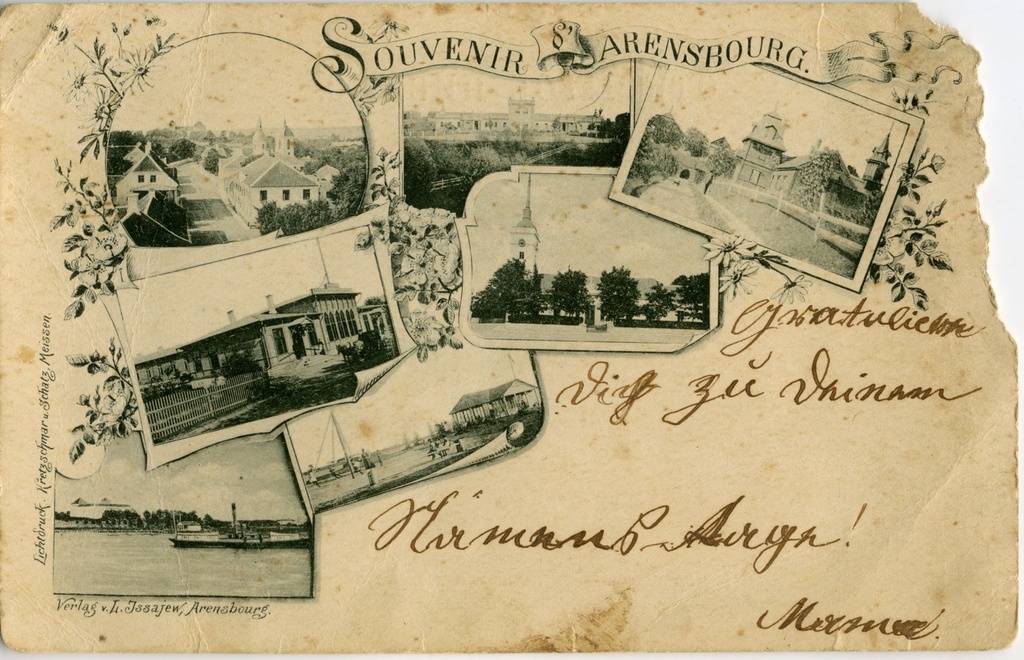 SOUVENIR d' ARENSBOURG.
Gratuliere
Dich zu Deinem
Namens Tage!
Mama
Lichtdruck. Kretzschmar u. Schatz, Meissen.
Verlag v. L. Issajew, Arensbourg.